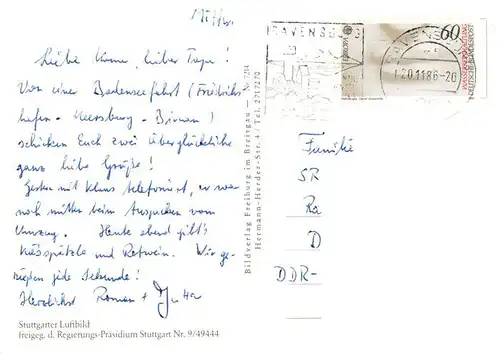 Liebe Könne, lieber Tapu!
Von einer Bodenseefahrt (Friedrichs-
hafen - Meersburg - Birnau)
schicken Euch zwei überglückliche
ganz liebe Grüße!
Gestern mit Klaus telefoniert, er war
noch mitten beim Auspacken vom
Umzug. Heute abend gibt's
Käsespätzle und Rotwein. Wir ge-
nießen jede Sekunde!
Herzlichst Roman + Jutta
Stuttgarter Luftbild
freigeg. d. Regierungs-Präsidium Stuttgart Nr. 9/49444
Bildverlag Freiburg im Breisgau — Nr. 7214
Hermann-Herder-Str. 4 / Tel. 2717270
RAVENSBURG
EUROPA
60
DEUTSCHE BUNDESPOST
20.11.86-20
Familie
SR
Ra
D
DDR-